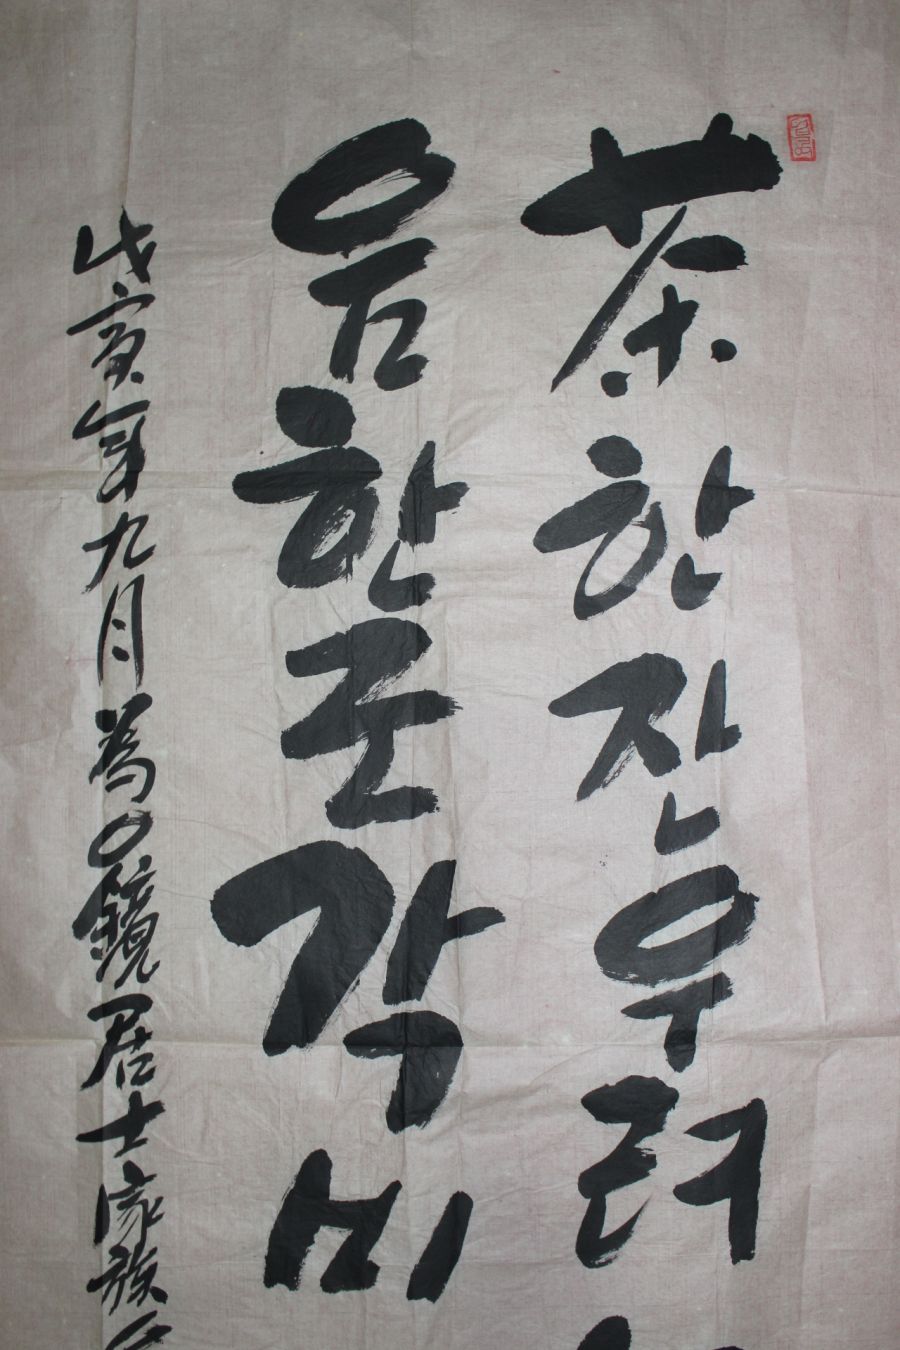 茶한잔우려
음한조각비
戊寅年九月 為 ○鏡居士家族